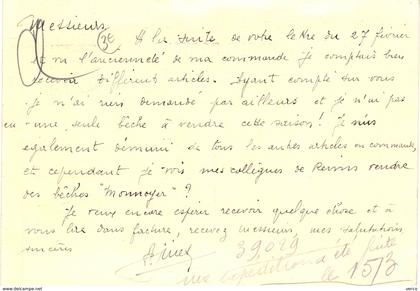 Messieurs
A la suite de votre lettre du 27 février
et vu l'ancienneté de ma commande je comptais bien
recevoir différent articles. Ayant compté sur vous
je n'ai rien demandé par ailleurs et je n'ai pas
eu une seule bêche à vendre cette saison! Je suis
également démuni de tous les autres articles en commande
et cependant je vois mes collègues de Reims vendre
des bêches "Monnoyer" ?
Je veux encore espérer recevoir quelque chose et à
vous lire dans facture, recevez messieurs, mes salutations
sincères
39029
expédition a été faite
le 15/3